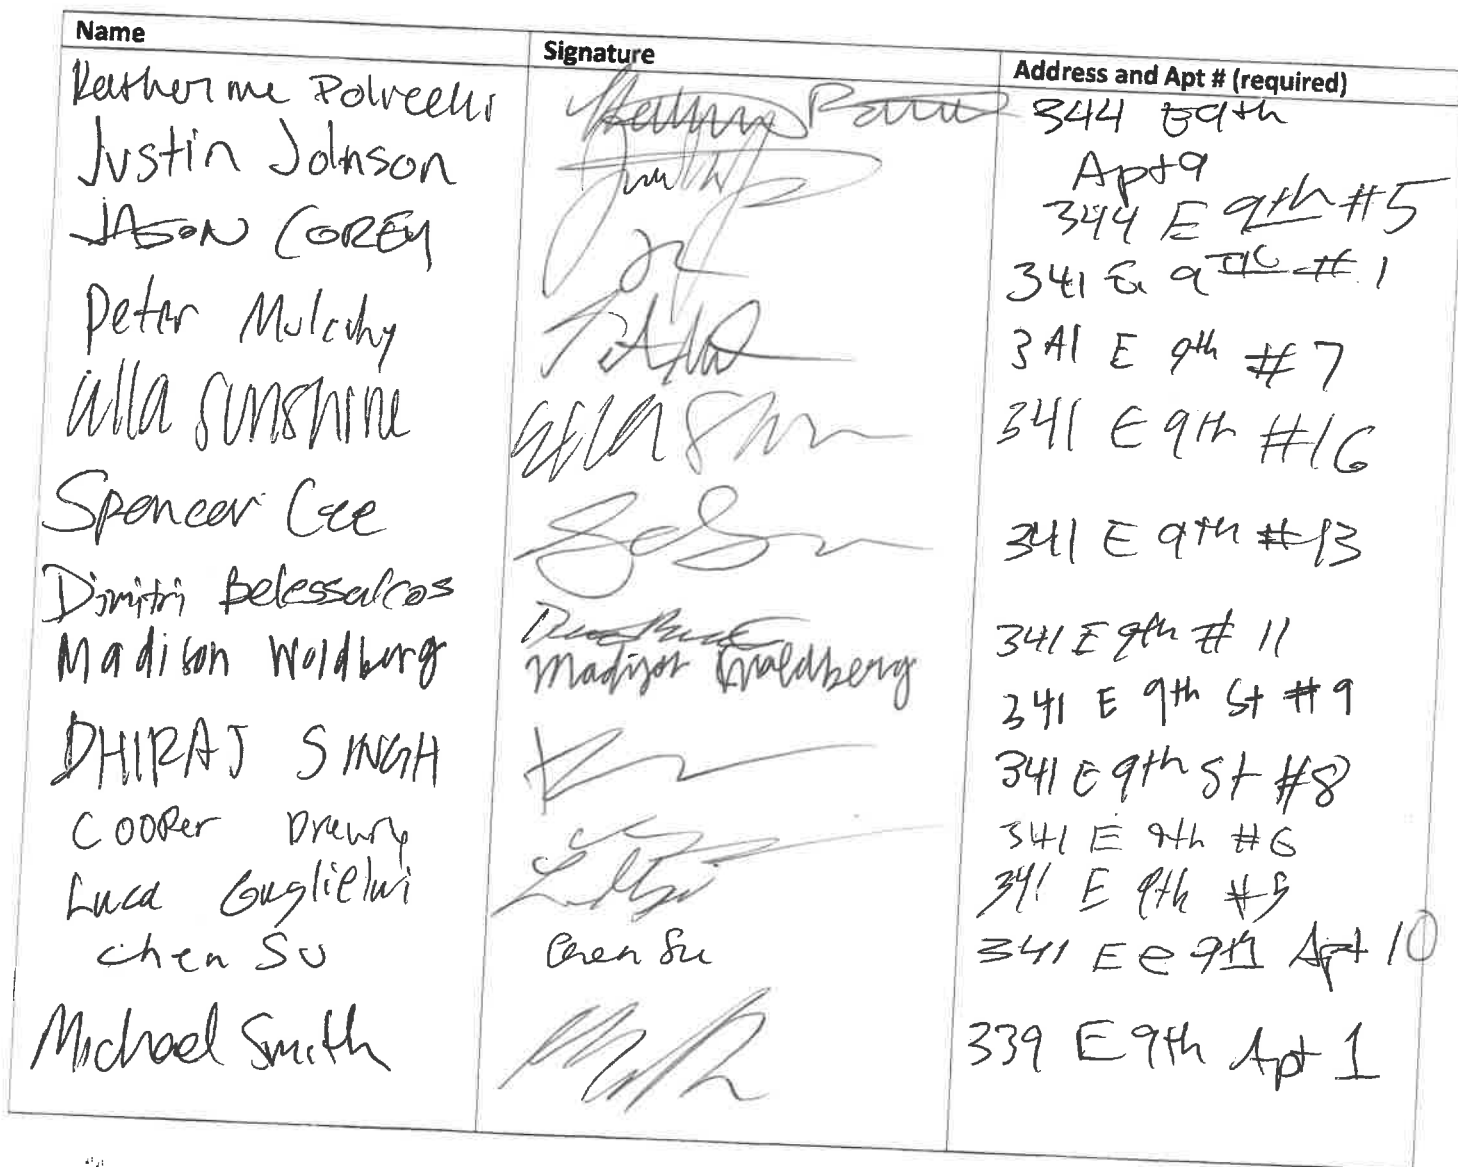 Name Signature Address and Apt # (required)
Katherine 344 E9th
Apt 9
Justin Johnson 344 E 9th #5
JASON COREY 341 E 9TH #1
Peter Mulcahy 341 E 9th #7
Sunshine 341 E 9th #16
Spencer 341 E 9th #13
Dimitri 341 E 9th # 11
Madison Woldberg Madison Waldberg 341 E 9th St #9
DHIRAJ SINGH 341 E 9th St #8
Cooper Drewry 341 E 9th #6
Luca Guglielmi 341 E 9th #5
Chen Su Chen Su 341 E e 9th Apt 10
Michael Smith 339 E 9th Apt 1